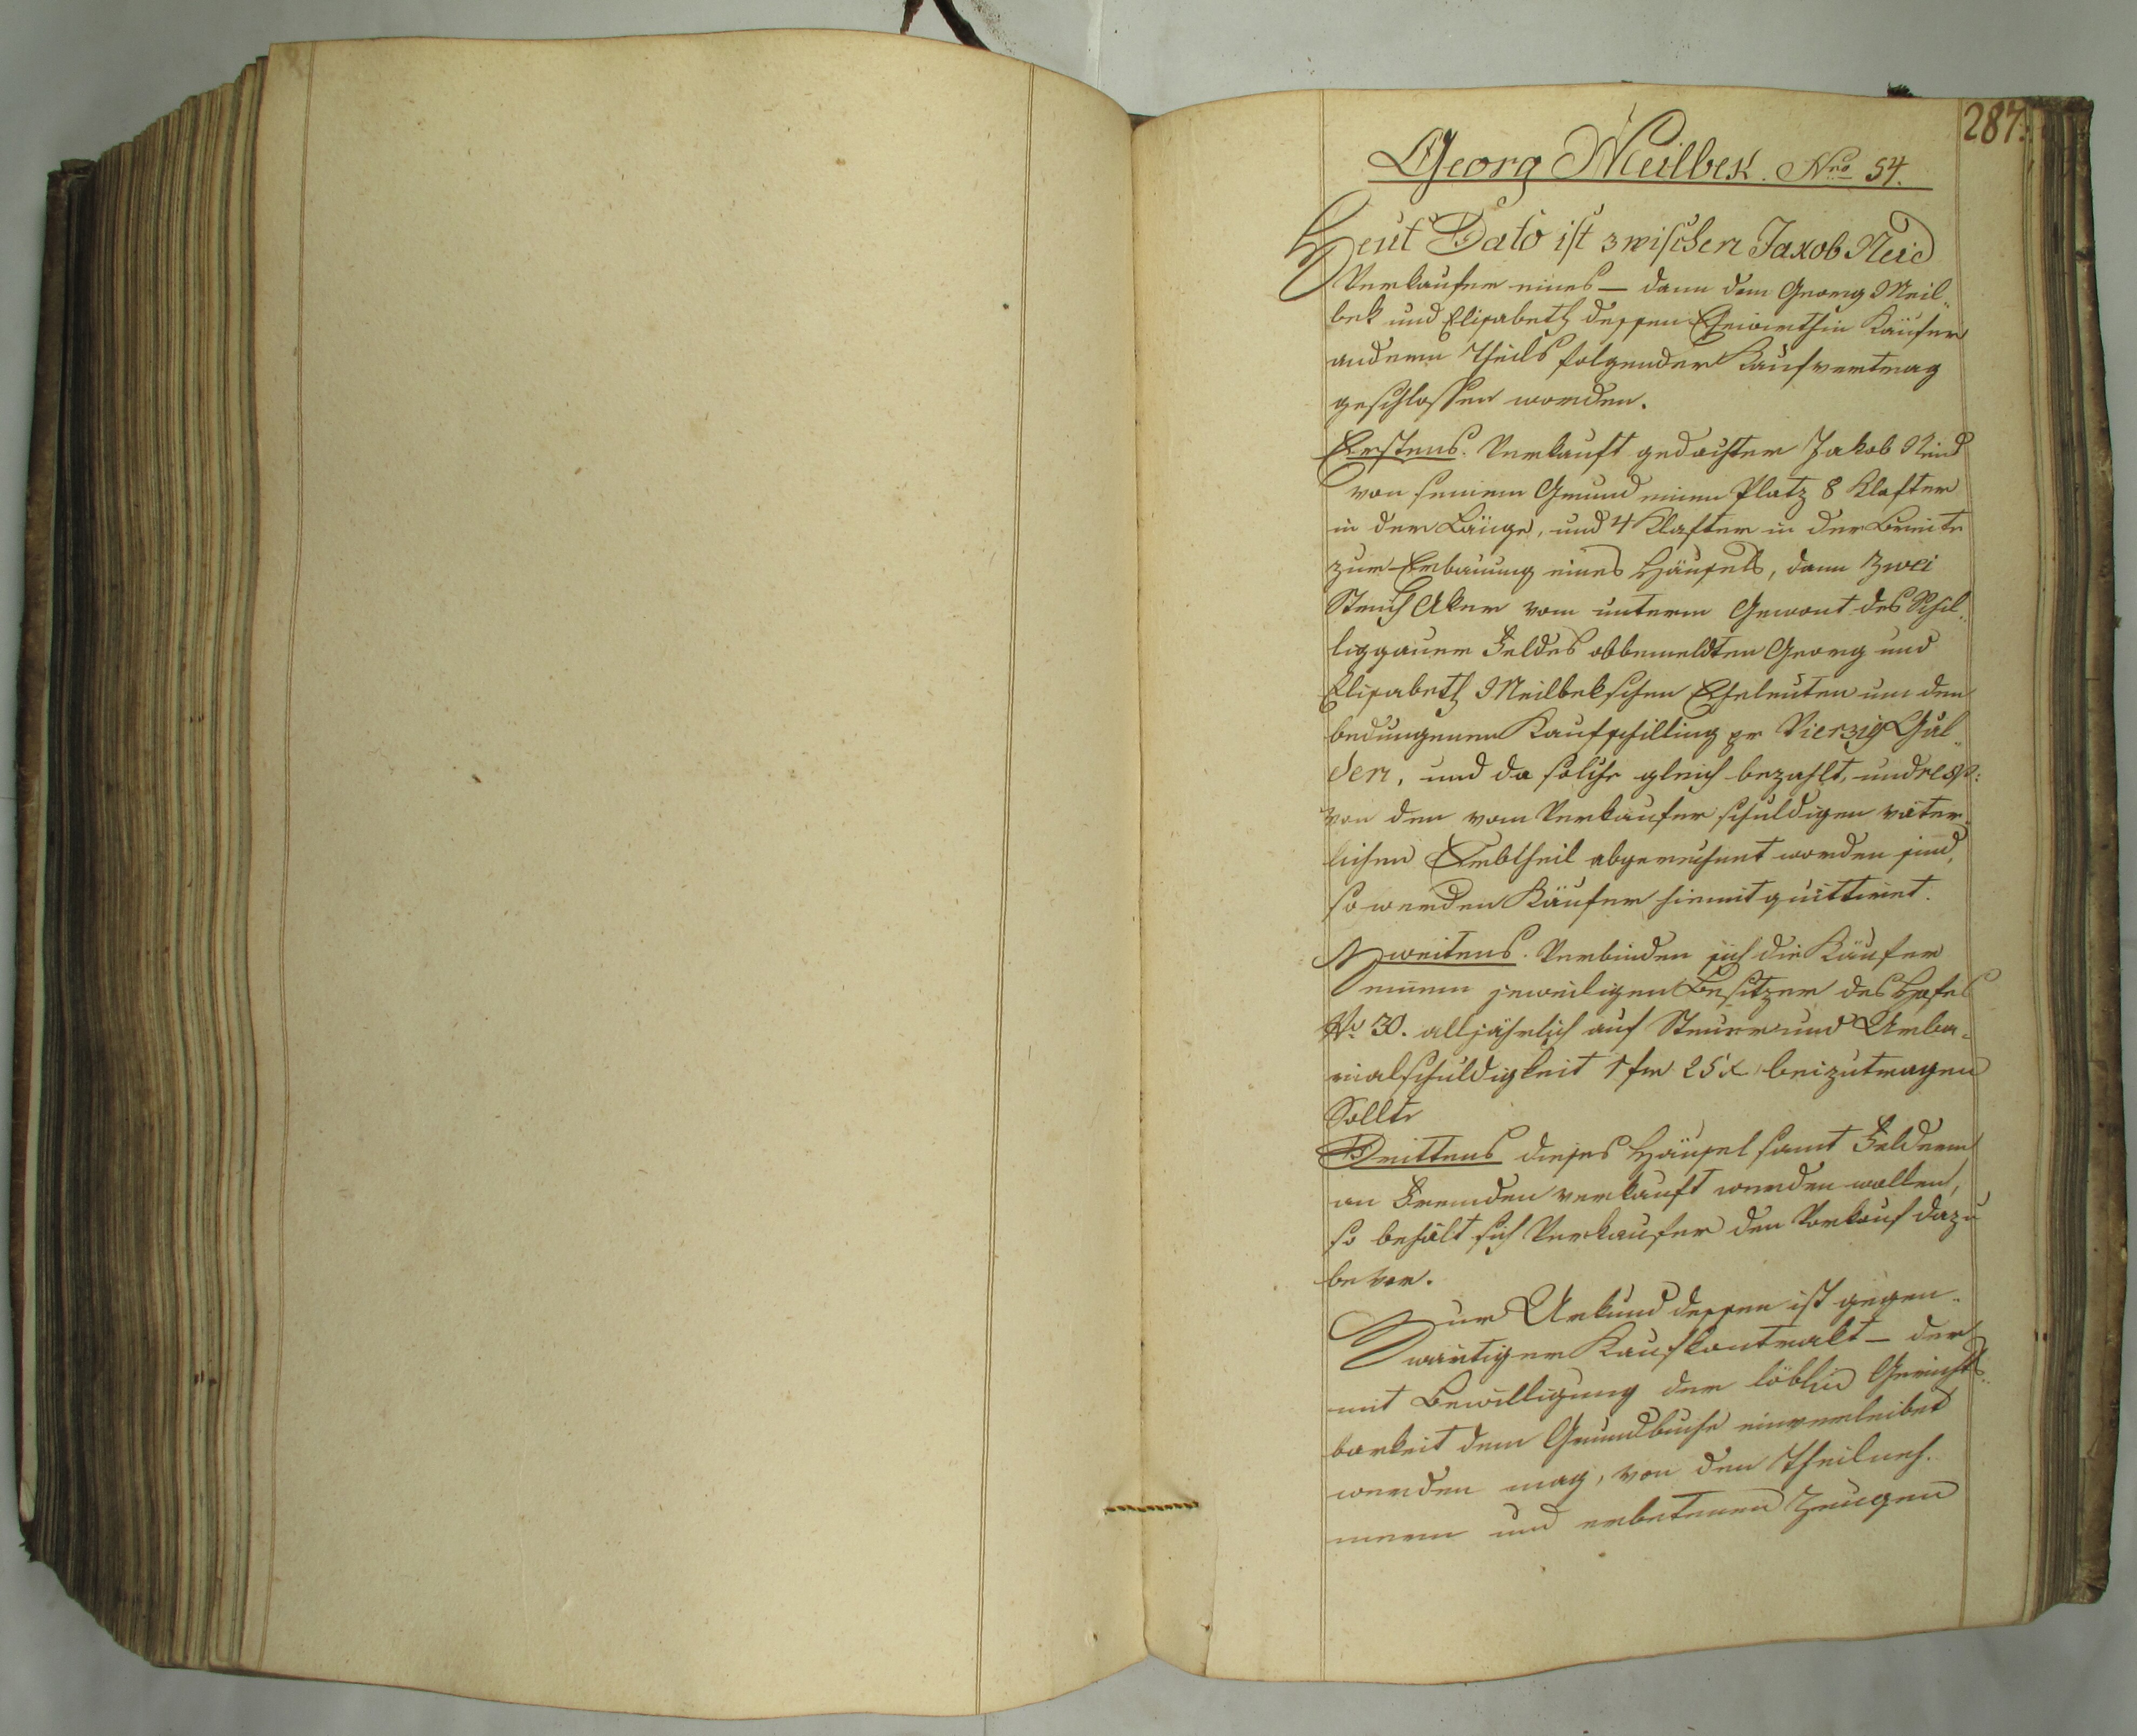 287.
Georg Meilbek. Nro 54.
Heut Dato ist zwischen Jakob Neid
Verkaufer eines — dann dem Georg Meil„
bek und Elisabeth dessen Ehewirthin Kaüfer
anderen Theils folgender Kaufvertrag
geschlossen worden.
Erstens. Verkauft gedachter Jakob Neid
von seinem Grund einen Platz 8 Klafter
in der Länge, und 4 Klafter in der Breite
zur Erbauung eines Häusels, dann Zwei
Strich Aker vom unterm Gewant des
Feldes obbemeldten Georg und
Elisabeth Meilbekschen Eheleuten um den
bedungenen Kaufschilling pr Vierzig Gul„
den, und da solche gleich bezahlt, und resp:
von den vom Verkaufer schuldigen väter„
lichen Erbtheil abgerechnet worden sind,
so werden Käufer hiemit quittiret.
Zweitens. Verbinden sich die Käufer
einem jeweiligen Besitzer des Hofes
No 30. alljährlich auf Steuer und Urba„
rialschuldigkeit 1 fr 25 x beizutragen
Sollte
Drittens dieses Häusel samt Feldern
an Fremden verkauft werden wollen,
so behält sich Verkaufer den Vorkauf dazu
bevor.
Zur Urkund dessen ist gegen„
wärtiger Kaufkontrakt — der
mit Bewilligung der löblich Gerichts„
barkeit dem Grundbuche einverleibet
werden mag, von den Theilneh„
mern und erbetenen Zeugen